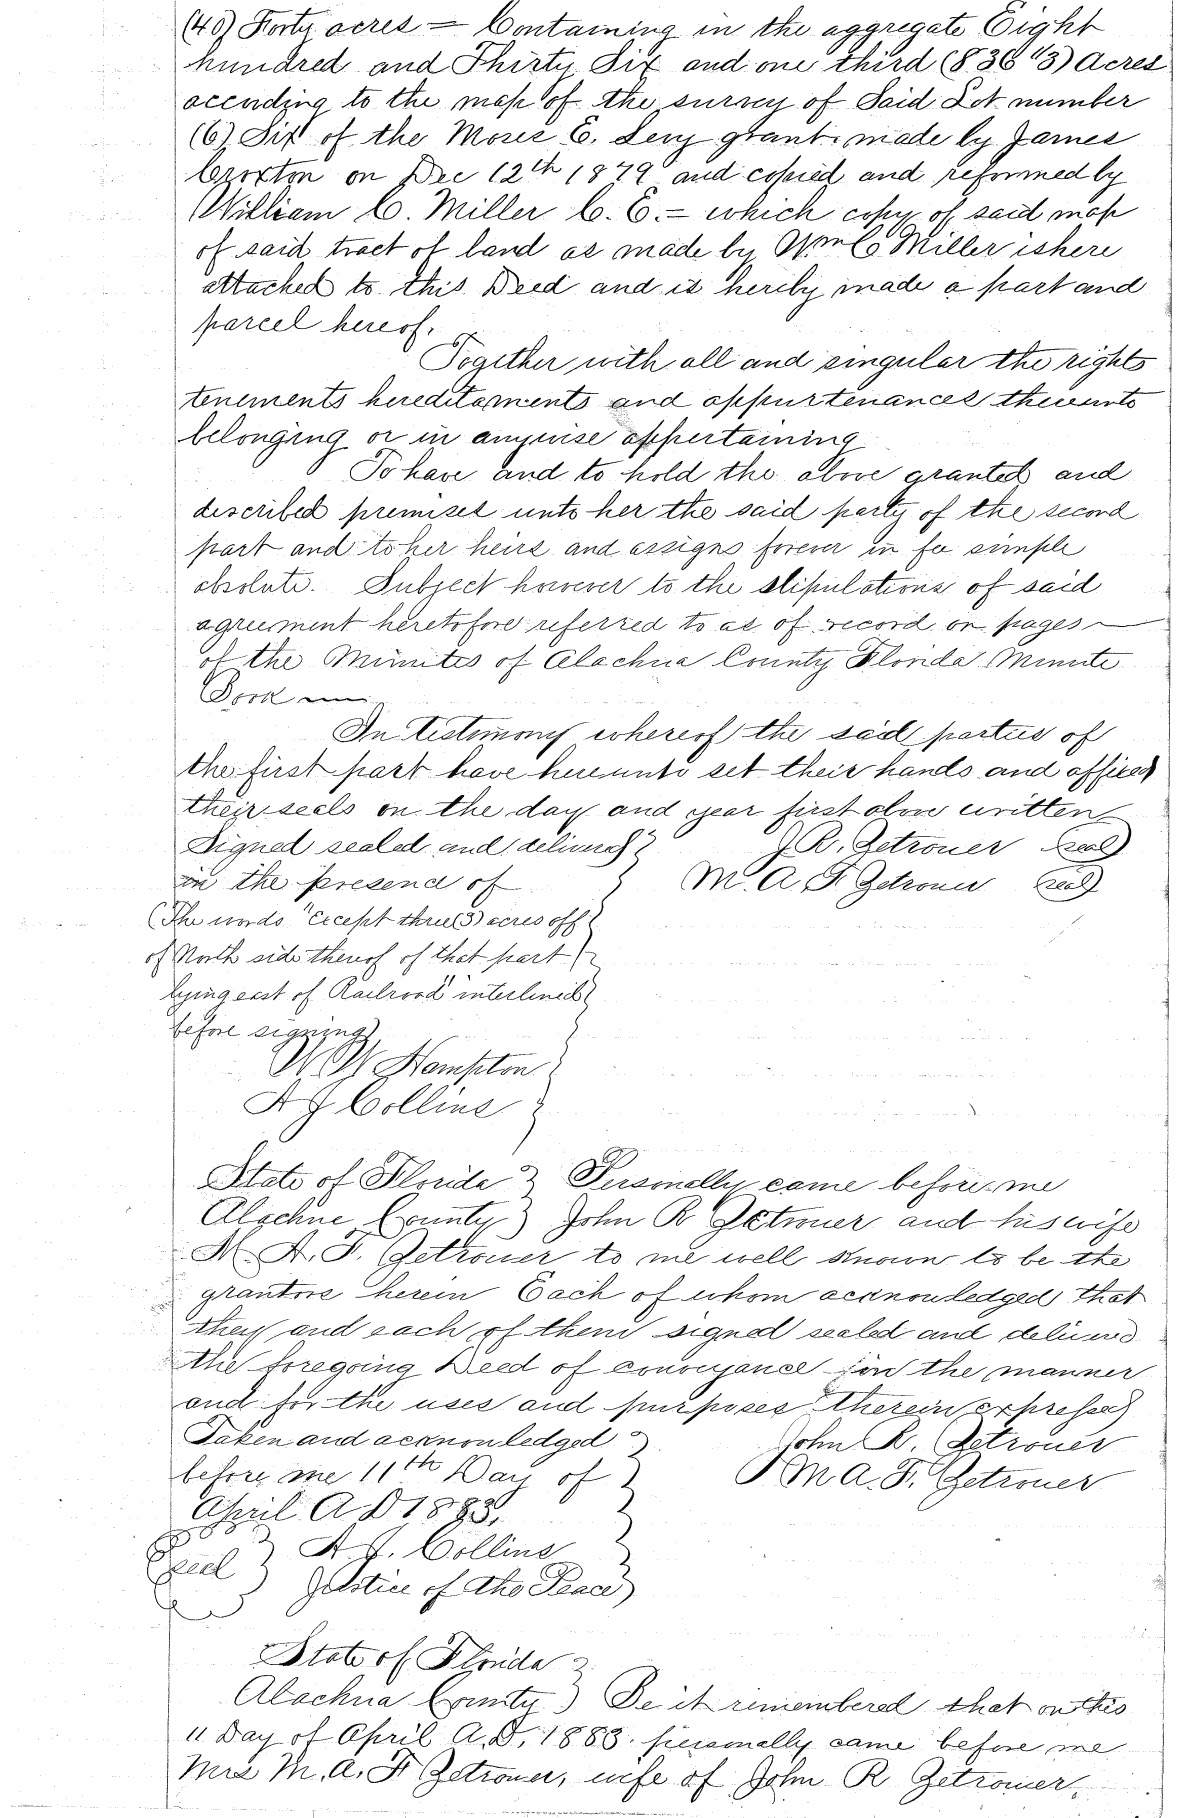 (40) Forty acres = Containing in the aggregate Eight
hundred and Thirty Six and one third (836 1/3) Acres
according to the map of the survey of Said Lot number
(6) Six of the Moses E. Levy grant made by James
Croxton on Dec 12th 1879 and copied and reformed by
William C. Miller C. E. = which copy of said map
of said tract of land as made by Wm C Miller is here
attached to this Deed and is hereby made a part and
parcel hereof.
Together with all and singular the rights
tenements hereditaments and appurtenances thereunto
belonging or in anywise appertaining
To have and to hold the above granted and
described premises unto her the said party of the second
part and to her heirs and assigns forever in fee simple
absolute. Subject however to the stipulations of said
agreement heretofore referred to as of record on pages —
of the Minutes of Alachua County Florida Minute
Book —
In testimony whereof the said parties of
the first part have hereunto set their hands and affixed
their seals on the day and year first above written
Signed sealed and delivered } J R. Zetrouer (seal)
in the presence of } M. A. F. Zetrouer (seal)
(The words "except three (3) acres off
of North side thereof of that part
lying east of Railroad" interlined
before signing)
W W Hampton
A J Collins
State of Florida } Personally came before me
Alachua County } John R Zetrouer and his wife
M. A. F. Zetrouer to me well known to be the
grantors herein Each of whom acknowledged that
they and each of them signed sealed and delivered
the foregoing Deed of conveyance in the manner
and for the uses and purposes therein expressed
Taken and acknowledged } John R. Zetrouer
before me 11th Day of } M A. F. Zetrouer
April A D 1883.
Seal } A. J. Collins
Justice of the Peace
State of Florida }
Alachua County } Be it remembered that on this
11 Day of April A.D. 1883. personally came before me
Mrs M. A. F Zetrouer, wife of John R Zetrouer,